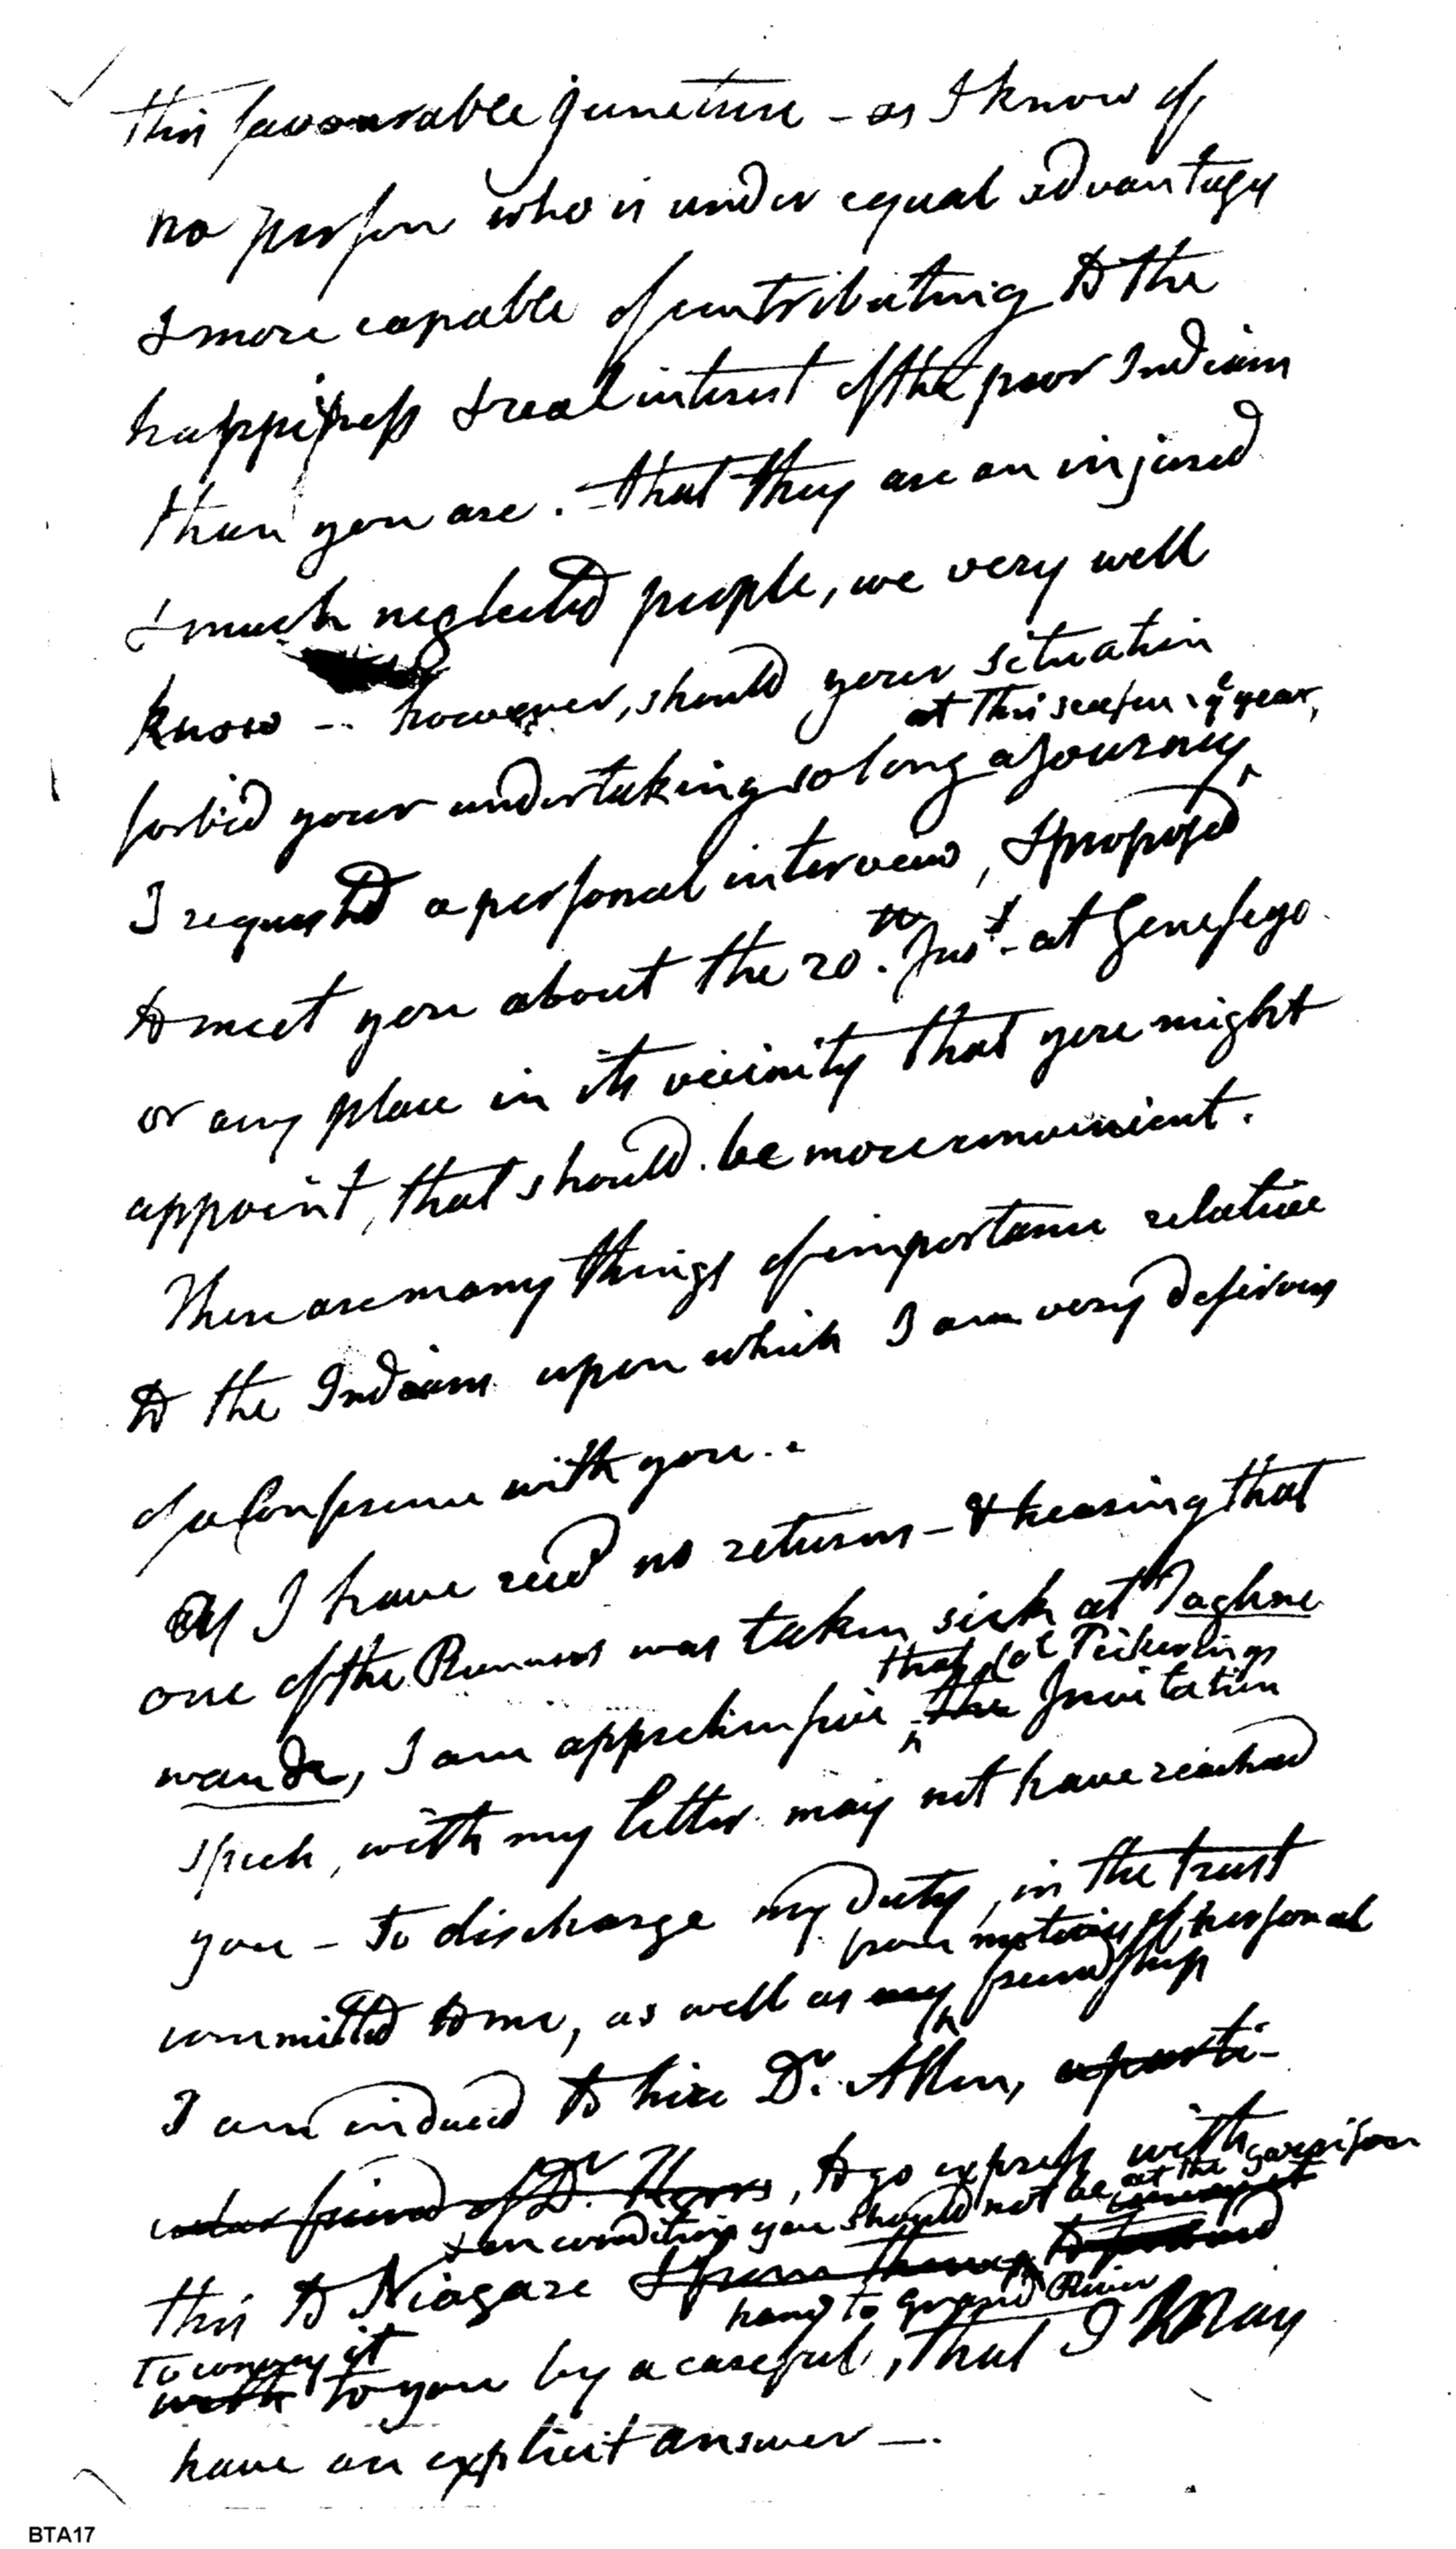 this favourable juncture – as I know of
no person who is under equal advantages
& more capable of contributing to the
happiness & real interest of the poor Indians
than you are. – that they are an injured
& much neglected people, we very well
know -- however, should your situation
at this season of ye year,
forbid your undertaking so long a Journey
I requested a personal interview, & proposed
to meet you about the 20th. Inst - at Genesego
or any place in its vicinity that you might
appoint, that should be more convenient.
There are many things of importance relative
to the Indians upon which I am very desirous
of a Conference with you..
As I have recd no returns – & hearing that
one of the Runners was taken sick at Taghne
that Col Pickerings
wande, I am apprehensive the Invitation
speech, with my letter may not have reached
you – To discharge my Duty, in the trust
from motives of personal
committed to me, as well as my friendship
I am induced to hire Dr. Allen, a parti-
cular friend of Dr. , to go express with
& on condition you should not be at the garrison
this to Niagara & from thence to forward
hand to Grand River
to convey it
to you by a careful, that I May
have an explicit answer —.
BTA17